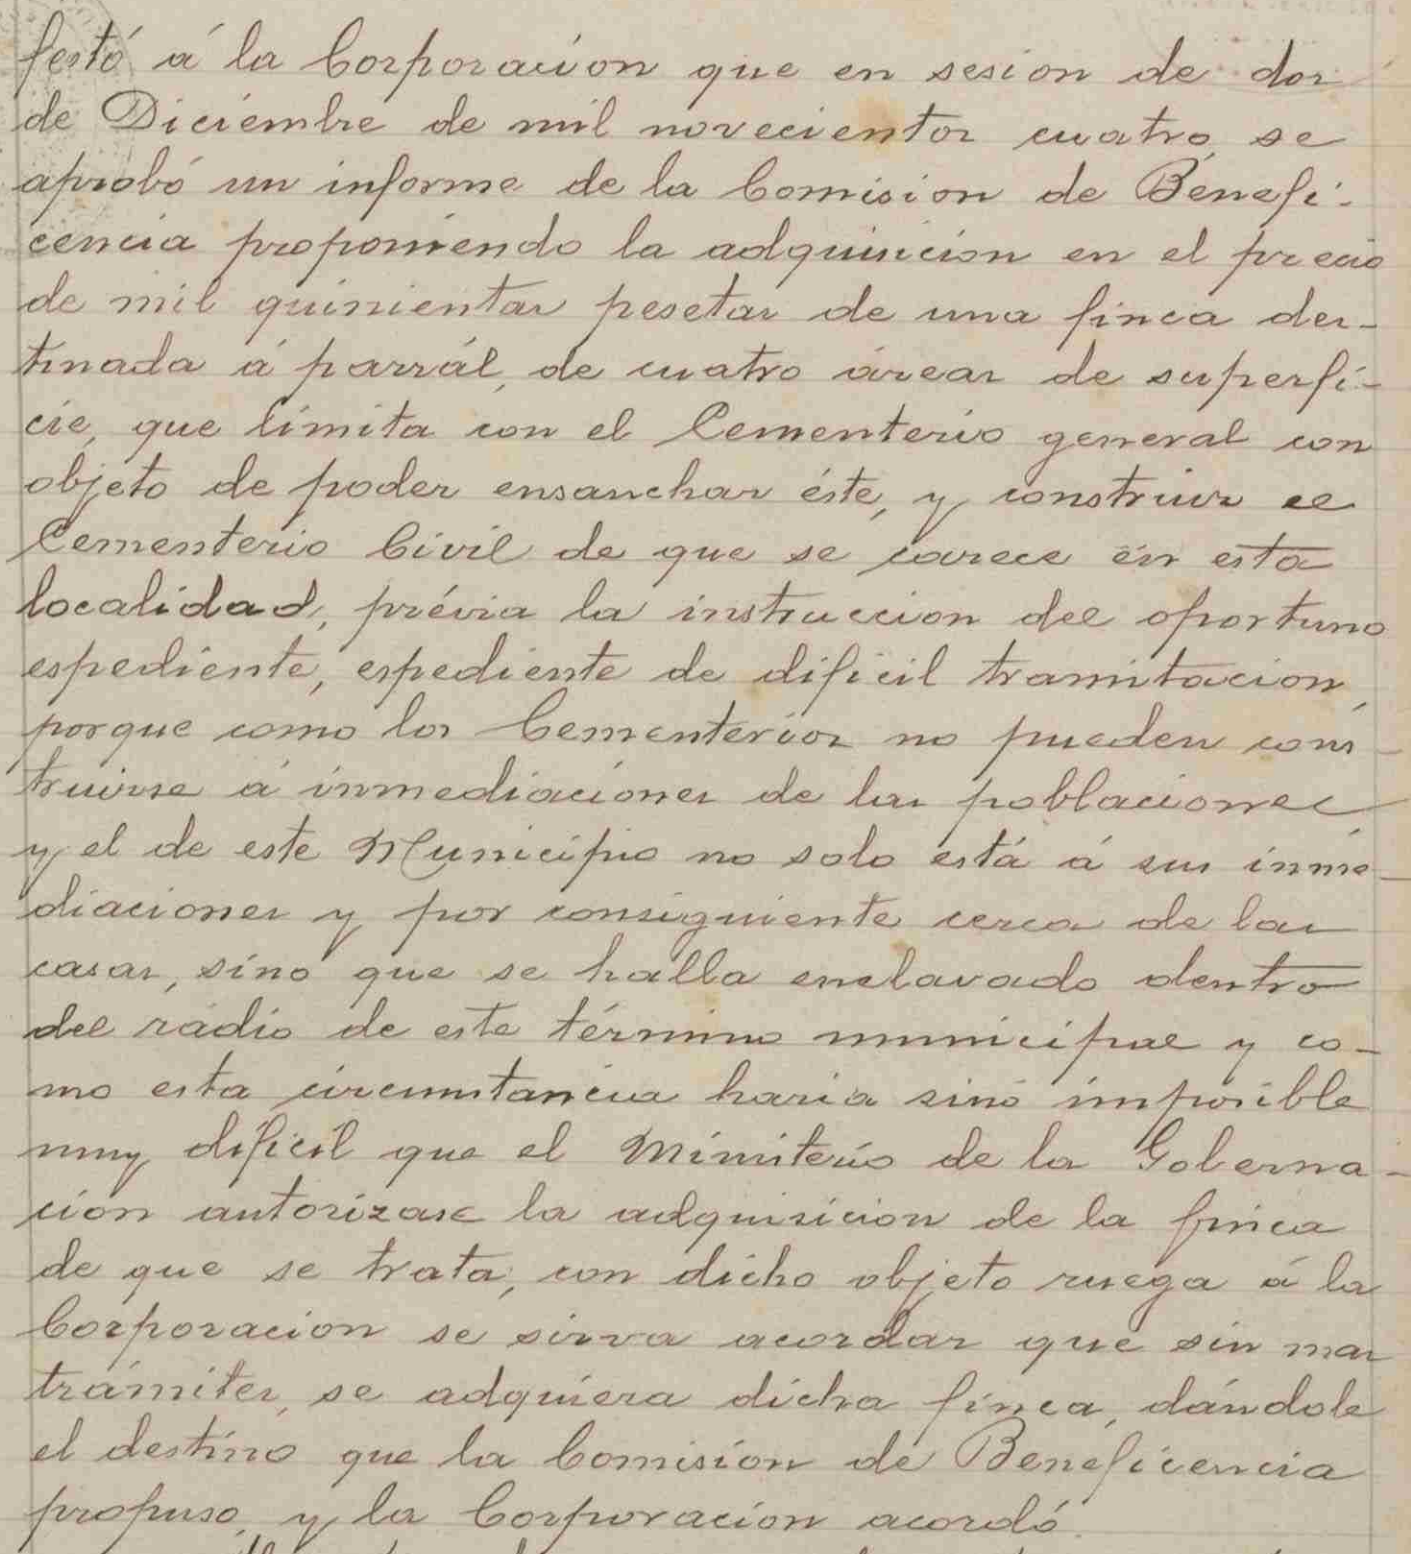 festó á la Corporación que en sesion de dos
de Diciembre de mil novecientos cuatro, se
aprobó un informe de la Comision de Benefi-
cencia proponiendo la adquisición en el precio
de mil quinientas pesetas de una finca des-
tinada á parrál, de cuatro áreas de superfi-
cie, que limita con el Cementerio general con
objeto de poder ensanchar éste, y construir el
Cementerio Civil de que se carece en esta
localidad, prévia la instruccion del oportuno
espediente, espediente de dificil tramitacion,
porque como los Cementerios no pueden cons-
truirse á inmediaciones de las poblaciones
y el de este Municipio no solo está á sus inme-
diaciones y por consiguiente cerca de las
casas, sino que se halla enclavado dentro
del radio de este término municipal y co-
mo esta circunstancia haria sinó imposible
muy dificil que el Ministerio de la Goberna-
cion autorizase la adquisicion de la finca
de que se trata, con dicho objeto ruega á la
Corporacion se sirva acordar que sin mas
trámites, se adquiera dicha finca, dándole
el destino que la Comision de Beneficencia
propuso, y la Corporacion acordó.